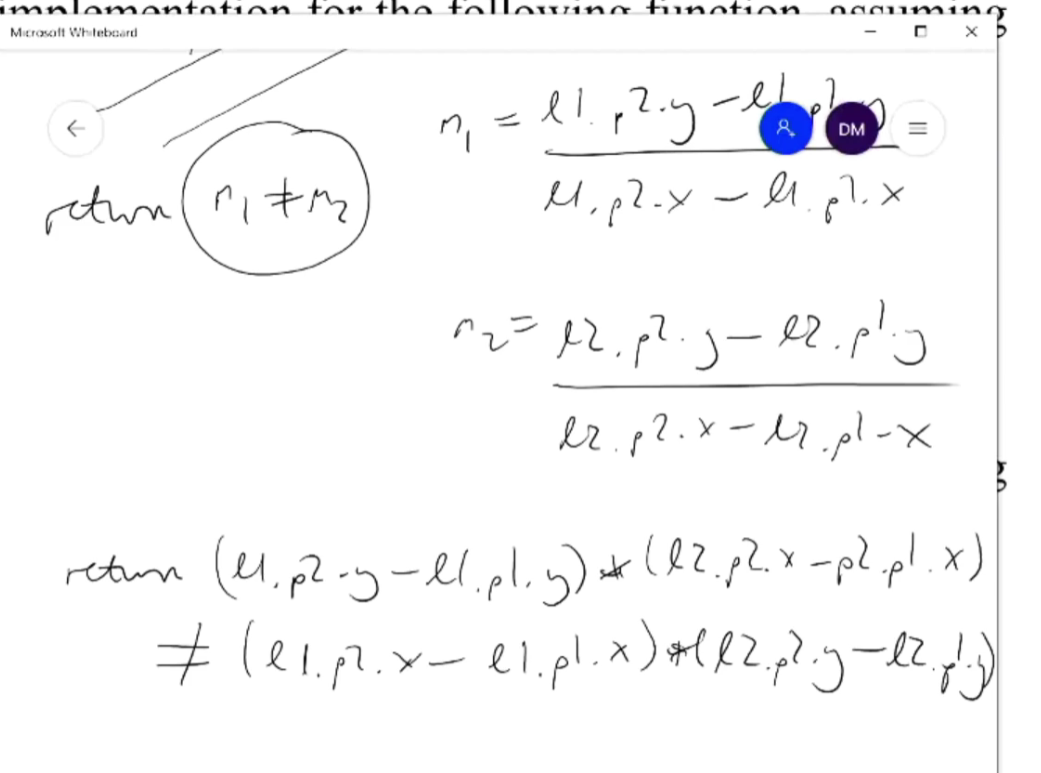 implementation for the following function, assuming
Microsoft Whiteboard
m₁ = l1.p2.y - l1.p1.y
DM
l1.p2.x - l1.p1.x
return m₁ ≠ m₂
m₂ = l2.p2.y - l2.p1.y
l2.p2.x - l2.p1.x
return (l1.p2.y - l1.p1.y) * (l2.p2.x - p2.p1.x)
≠ (l1.p2.x - l1.p1.x) * (l2.p2.y - l2.p1.y)